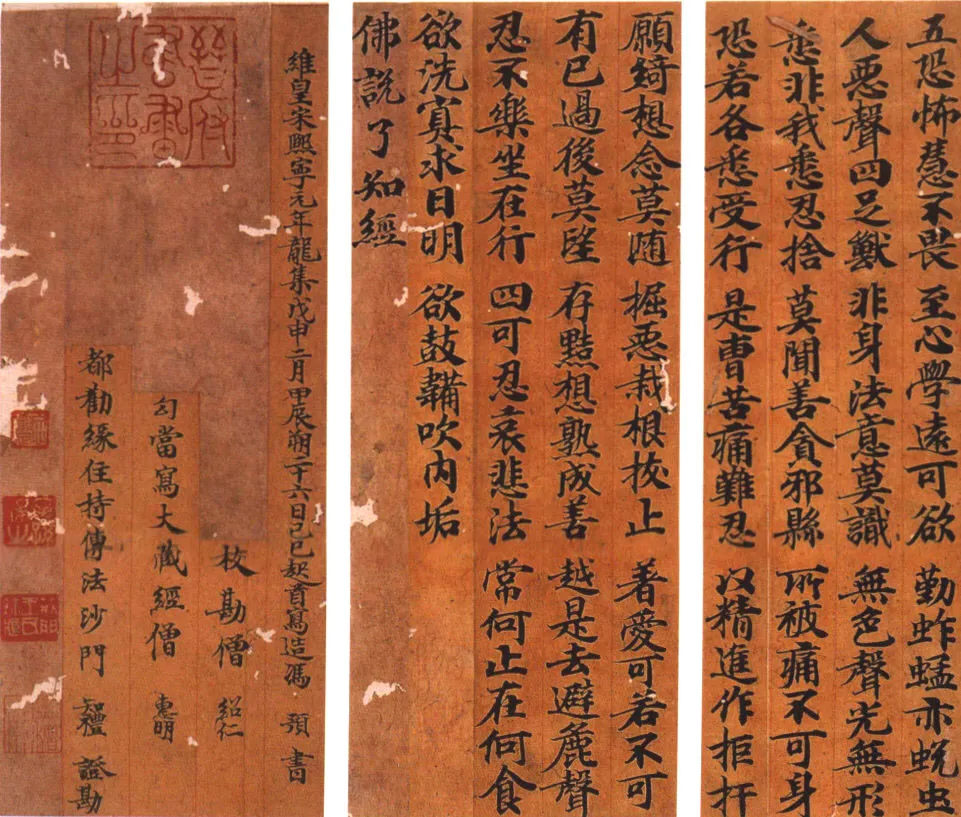 五恐怖慧不畏 至心學遠可欲 勤蚱蜢亦蛻虫
人惡聲四足獸 非身法意莫識 無色聲光無形
恚非我悉忍捨 莫聞善貪邪縣 所被痛不可身
恐若各悉受行 是曹苦痛難忍 以精進作拒扞
願綺想念莫随 掘惡栽根拔止 著愛可若不可
有已過後莫望 存黠想熟成善 越是去避麁聲
忍不樂坐在行 四可忍哀悲法 常何止在何食
欲洗寘求日明 欲鼓鞴吹内垢
佛說了知經
維皇宋熙寧元年龍集戊申二月甲辰朔二十六日己巳起首寫造馮 預 書
校勘僧 紹仁
勾當寫大藏經僧 惠明
都勸緣住持傳法沙門 知禮 證勘
晉府書畫之印